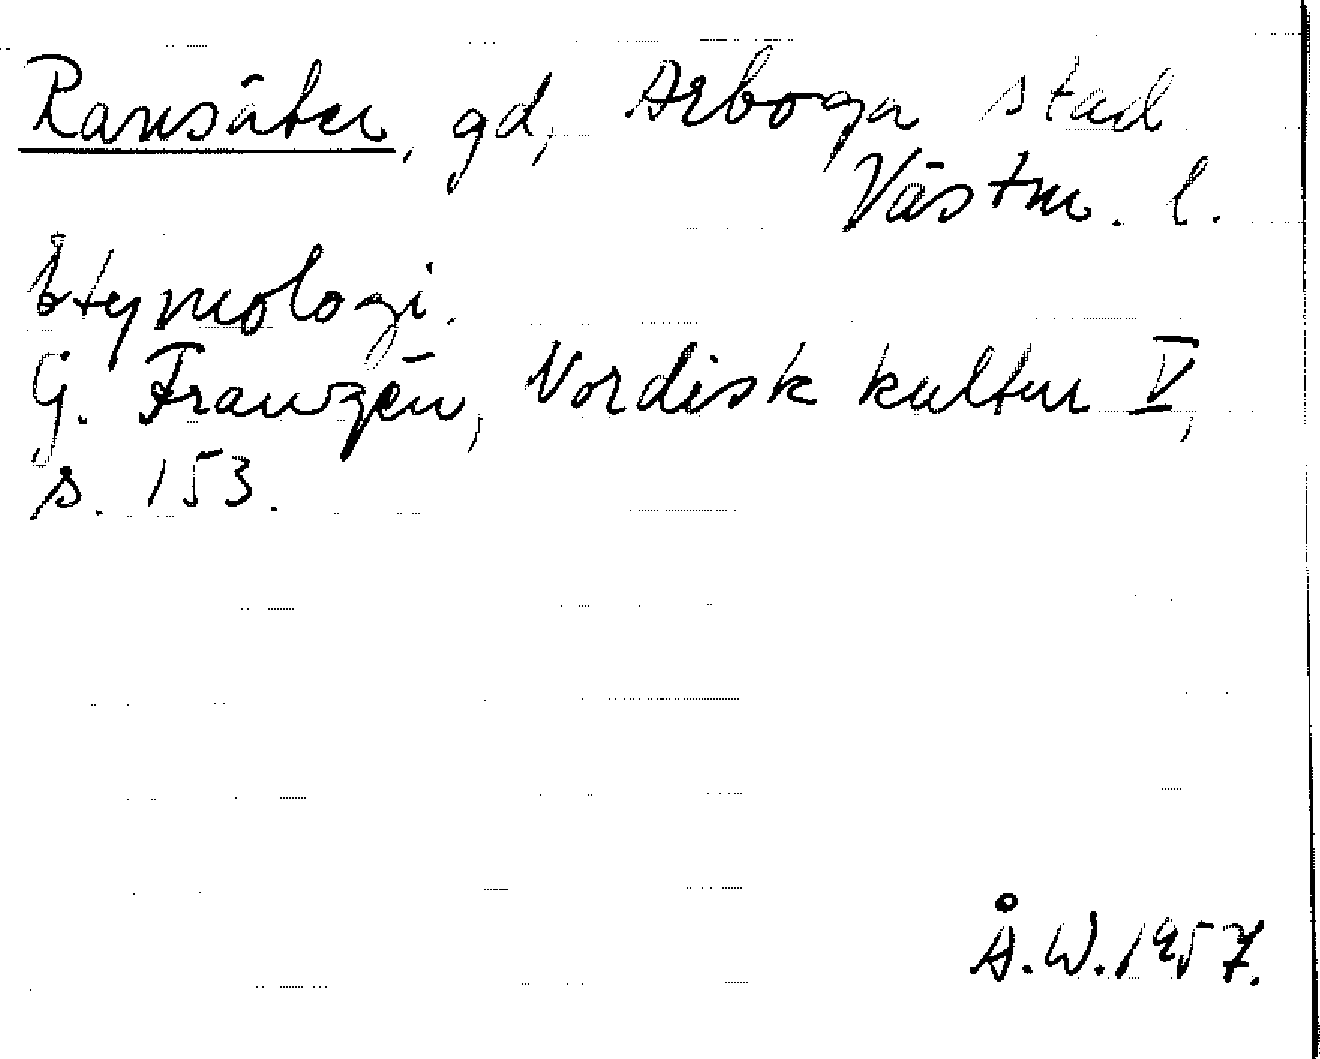 Ransäter, gd, Arboga stad
Västm. l.
Etymologi.
G. Franzén, Nordisk kultur V,
s. 153.
Å.W. 1957.